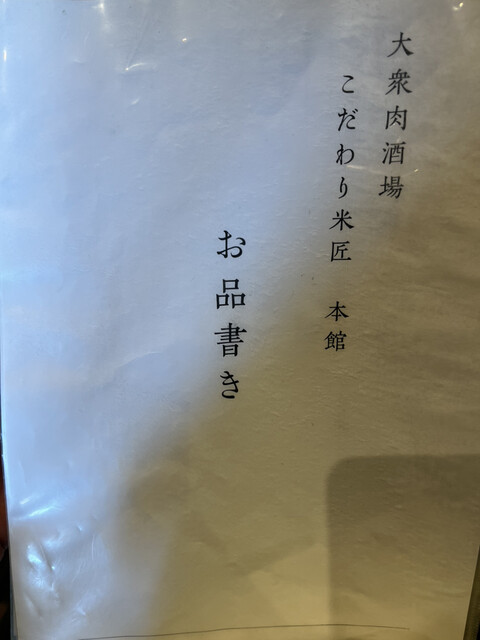 大衆肉酒場
こだわり米匠　本館
お品書き